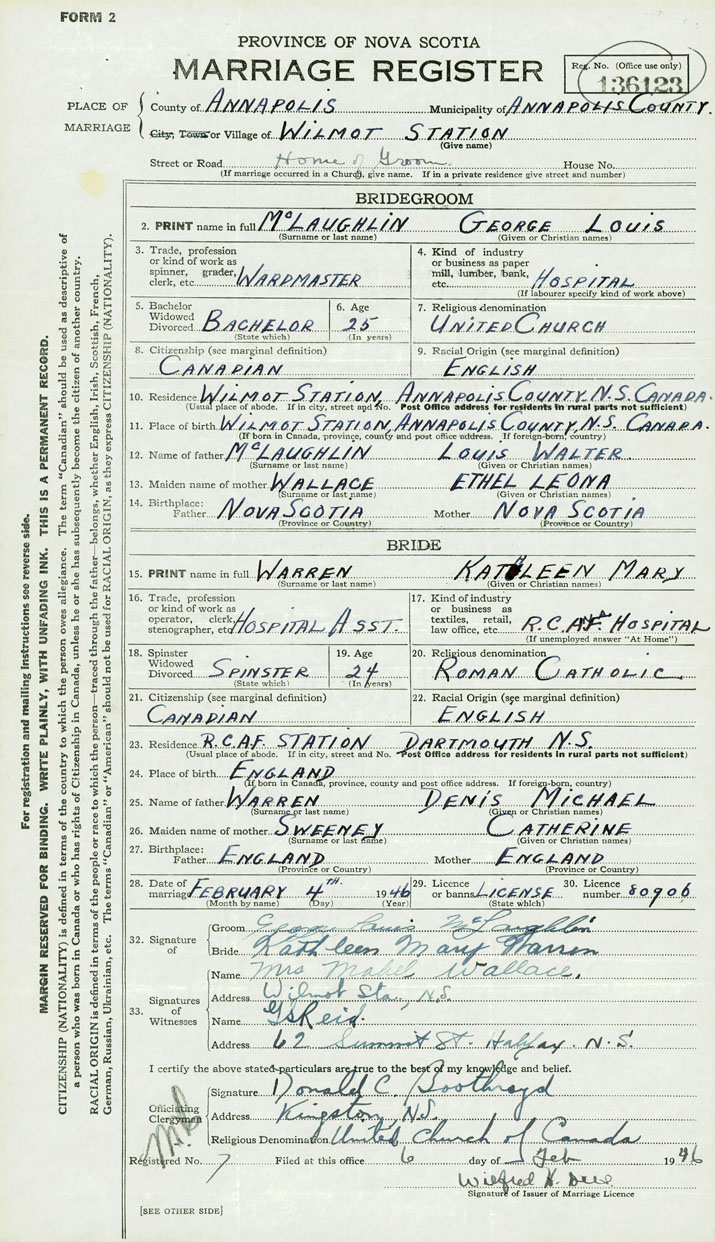 FORM 2
PROVINCE OF NOVA SCOTIA
MARRIAGE REGISTER
Reg. No. (Office use only)
136123
PLACE OF MARRIAGE
County of ANNAPOLIS Municipality of ANNAPOLIS COUNTY.
City, Town or Village of WILMOT STATION
(Give name)
Street or Road Home of Groom House No.
(If marriage occurred in a Church, give name. If in a private residence give street and number)
BRIDEGROOM
2. PRINT name in full McLAUGHLIN GEORGE LOUIS
(Surname or last name) (Given or Christian names)
3. Trade, profession or kind of work as spinner, grader, clerk, etc. WARDMASTER
4. Kind of industry or business as paper mill, lumber, bank, etc. HOSPITAL
(If labourer specify kind of work above)
5. Bachelor Widowed Divorced BACHELOR
(State which)
6. Age 25
(In years)
7. Religious denomination
UNITED CHURCH
8. Citizenship (see marginal definition)
CANADIAN
9. Racial Origin (see marginal definition)
ENGLISH
10. Residence WILMOT STATION, ANNAPOLIS COUNTY, N.S. CANADA.
(Usual place of abode. If in city, street and No. Post Office address for residents in rural parts not sufficient)
11. Place of birth WILMOT STATION, ANNAPOLIS COUNTY, N.S. CANADA.
(If born in Canada, province, county and post office address. If foreign-born, country)
12. Name of father McLAUGHLIN LOUIS WALTER
(Surname or last name) (Given or Christian names)
13. Maiden name of mother WALLACE ETHEL LEONA
(Surname or last name) (Given or Christian names)
14. Birthplace:
Father NOVA SCOTIA Mother NOVA SCOTIA
(Province or Country) (Province or Country)
BRIDE
15. PRINT name in full WARREN KATHLEEN MARY
(Surname or last name) (Given or Christian names)
16. Trade, profession or kind of work as operator, clerk, stenographer, etc. HOSPITAL ASST.
17. Kind of industry or business as textiles, retail, law office, etc. R.C.A.F. HOSPITAL
(If unemployed answer "At Home")
18. Spinster Widowed Divorced SPINSTER
(State which)
19. Age 24
(In years)
20. Religious denomination
ROMAN CATHOLIC
21. Citizenship (see marginal definition)
CANADIAN
22. Racial Origin (see marginal definition)
ENGLISH
23. Residence R.C.A.F. STATION DARTMOUTH N.S.
(Usual place of abode. If in city, street and No. Post Office address for residents in rural parts not sufficient)
24. Place of birth ENGLAND
(If born in Canada, province, county and post office address. If foreign-born, country)
25. Name of father WARREN DENIS MICHAEL
(Surname or last name) (Given or Christian names)
26. Maiden name of mother SWEENEY CATHERINE
(Surname or last name) (Given or Christian names)
27. Birthplace:
Father ENGLAND Mother ENGLAND
(Province or Country) (Province or Country)
28. Date of marriage FEBRUARY 4TH 1946
(Month by name) (Day) (Year)
29. Licence or banns LICENSE
(State which)
30. Licence number 80906
32. Signature of
Groom George Louis McLaughlin
Bride Kathleen Mary Warren
33. Signatures of Witnesses
Name Mrs Mabel Wallace.
Address Wilmot Sta., N.S.
Name GSReid.
Address 62 Summit St. Halifax N.S.
I certify the above stated particulars are true to the best of my knowledge and belief.
Officiating Clergyman
Signature Donald C. Boothroyd
Address Kingston, N.S.
Religious Denomination United Church of Canada
Registered No. 7 Filed at this office 6 day of Feb 1946
Wilfred
Signature of Issuer of Marriage Licence
[SEE OTHER SIDE]
For registration and mailing instructions see reverse side.
MARGIN RESERVED FOR BINDING. WRITE PLAINLY, WITH UNFADING INK. THIS IS A PERMANENT RECORD.
CITIZENSHIP (NATIONALITY) is defined in terms of the country to which the person owes allegiance. The term "Canadian" should be used as descriptive of
a person who was born in Canada or who has rights of Citizenship in Canada, unless he or she has subsequently become the citizen of another country.
RACIAL ORIGIN is defined in terms of the people or race to which the person—traced through the father—belongs, whether English, Irish, Scottish, French,
German, Russian, Ukrainian, etc. The terms "Canadian" or "American" should not be used for RACIAL ORIGIN, as they express CITIZENSHIP (NATIONALITY).